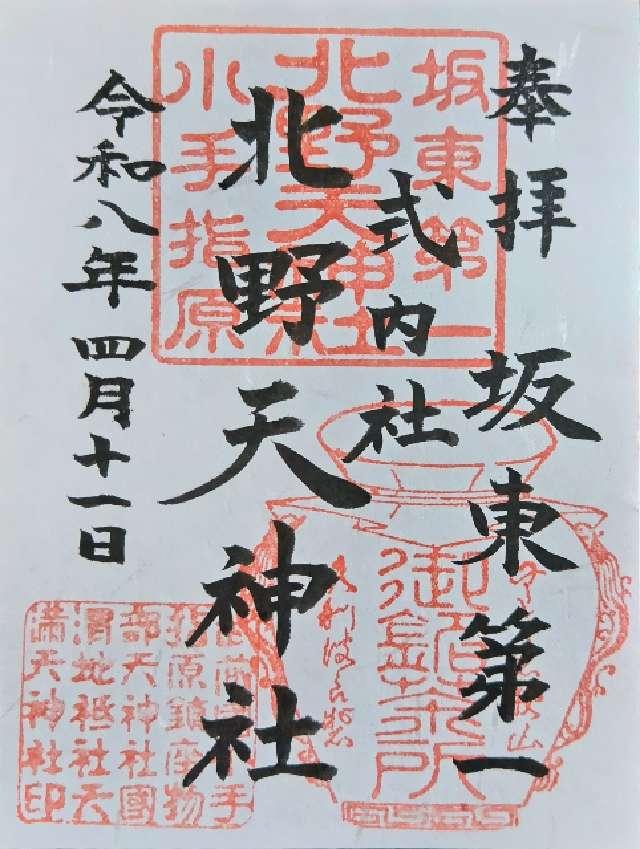 奉拝
坂東第一
式内社
北野天神社
令和八年四月十一日
坂東第一
北野天神社
小手指原
指原鎮座物
部天神社國
渭地祇社天
満天神社印